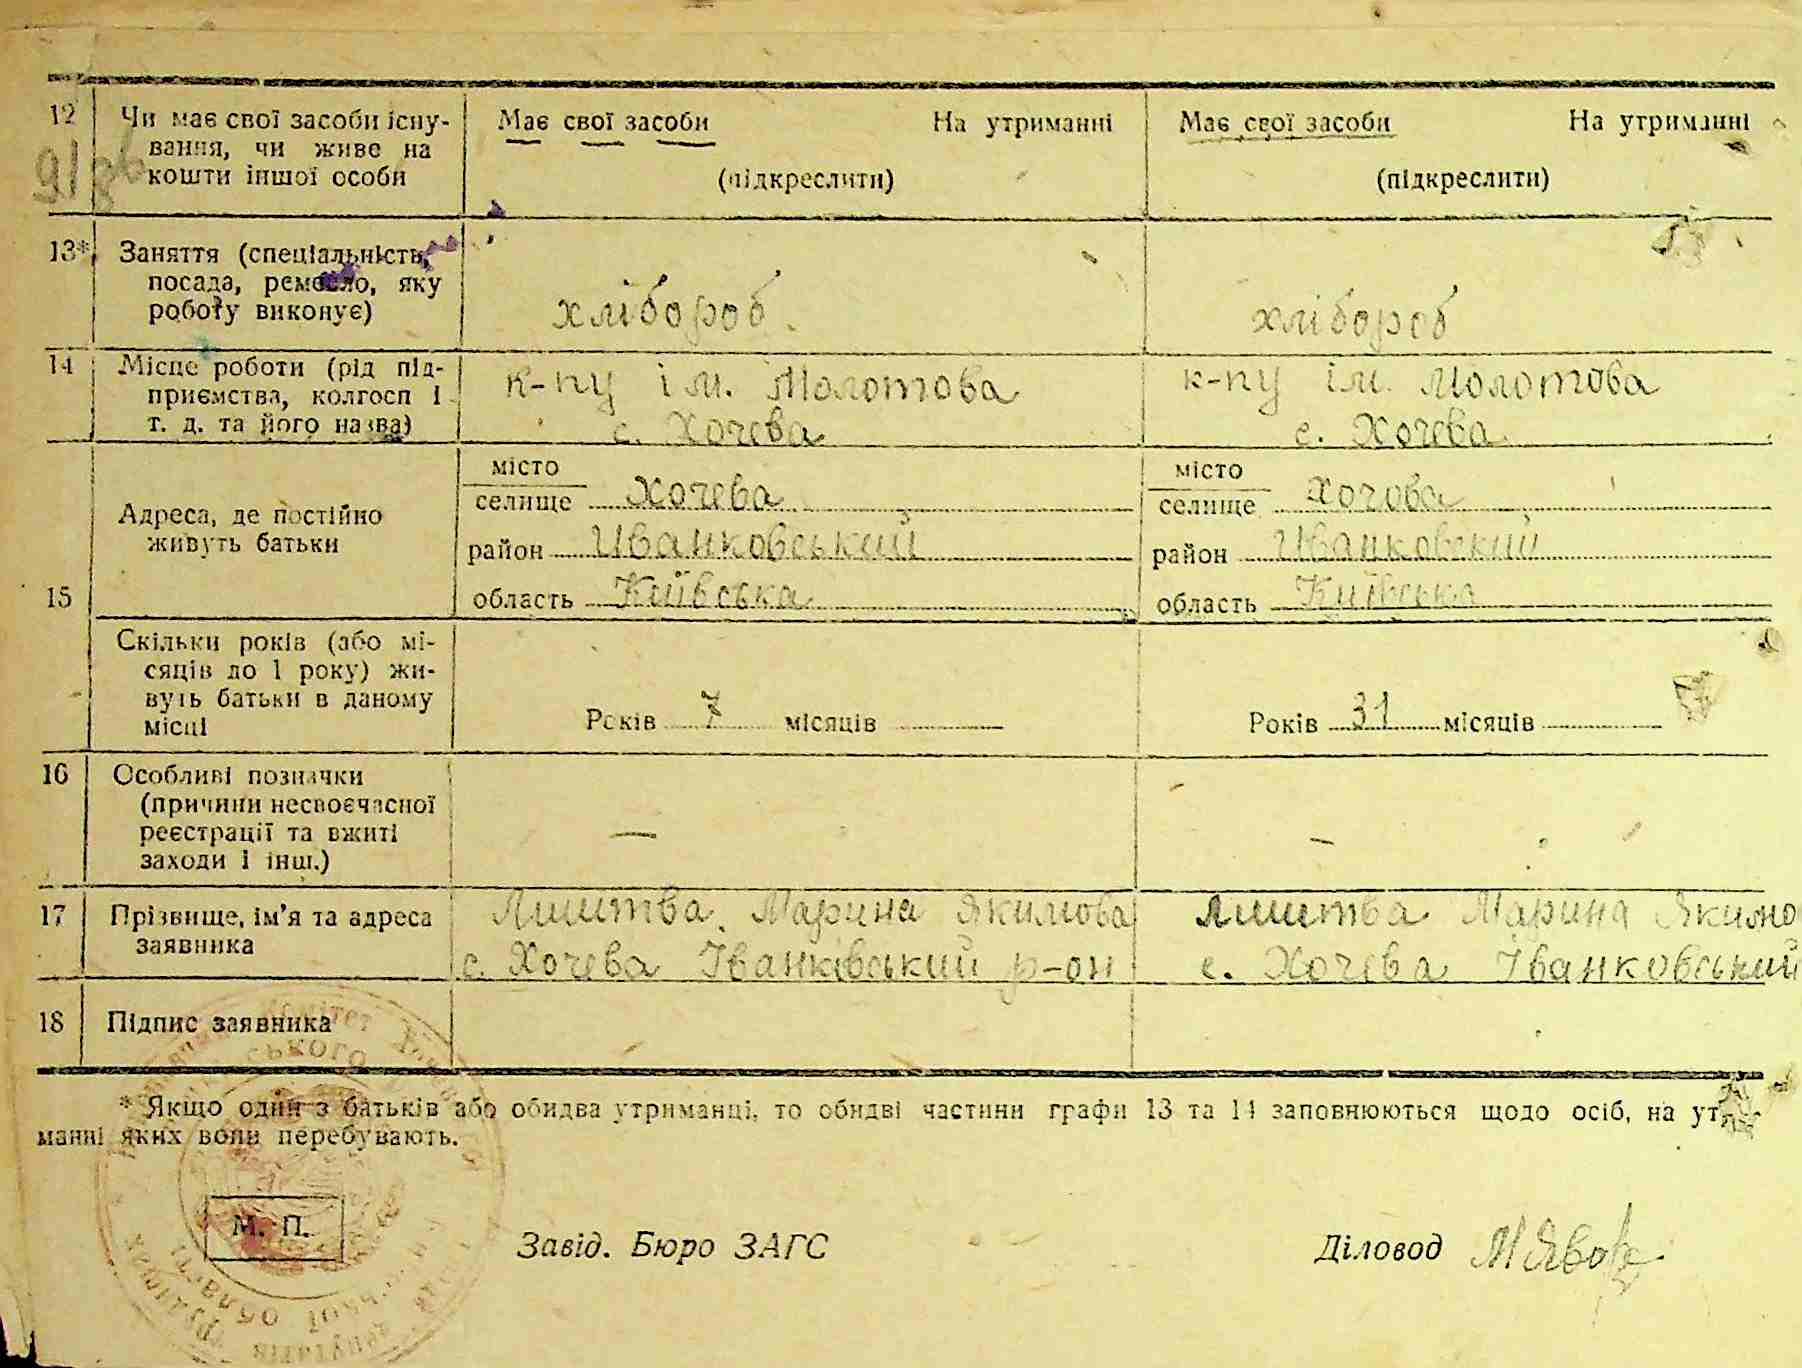 12 Чи має свої засоби існу-
вання, чи живе на
кошти іншої особи
Має свої засоби На утриманні
(підкреслити)
Має свої засоби На утриманні
(підкреслити)
13* Заняття (спеціальність,
посада, ремесло, яку
роботу виконує)
хлібороб.
хлібороб
14 Місце роботи (рід під-
приємства, колгосп і
т. д. та його назва)
к-пу ім. Молотова
с. Хочева
к-пу ім. Молотова
с. Хочева
15
Адреса, де постійно
живуть батьки
місто
селище Хочева
район Иванковський
область Київська
місто
селище Хочова
район Иванковский
область Київська
Скільки років (або мі-
сяців до 1 року) жи-
вуть батьки в даному
місці
Років 7 місяців
Років 31 місяців
16 Особливі позначки
(причини несвоєчасної
реєстрації та вжиті
заходи і інш.)
—
—
17 Прізвище, ім'я та адреса
заявника
Лиштва Марина Якимова
с. Хочева Іванківський р-он
Лиштва Марина Якимо
с. Хочева Іванковський
18 Підпис заявника
* Якщо один з батьків або обидва утриманці, то обидві частини графи 13 та 14 заповнюються щодо осіб, на
манні яких вони перебувають.
М. П.
Завід. Бюро ЗАГС
Діловод